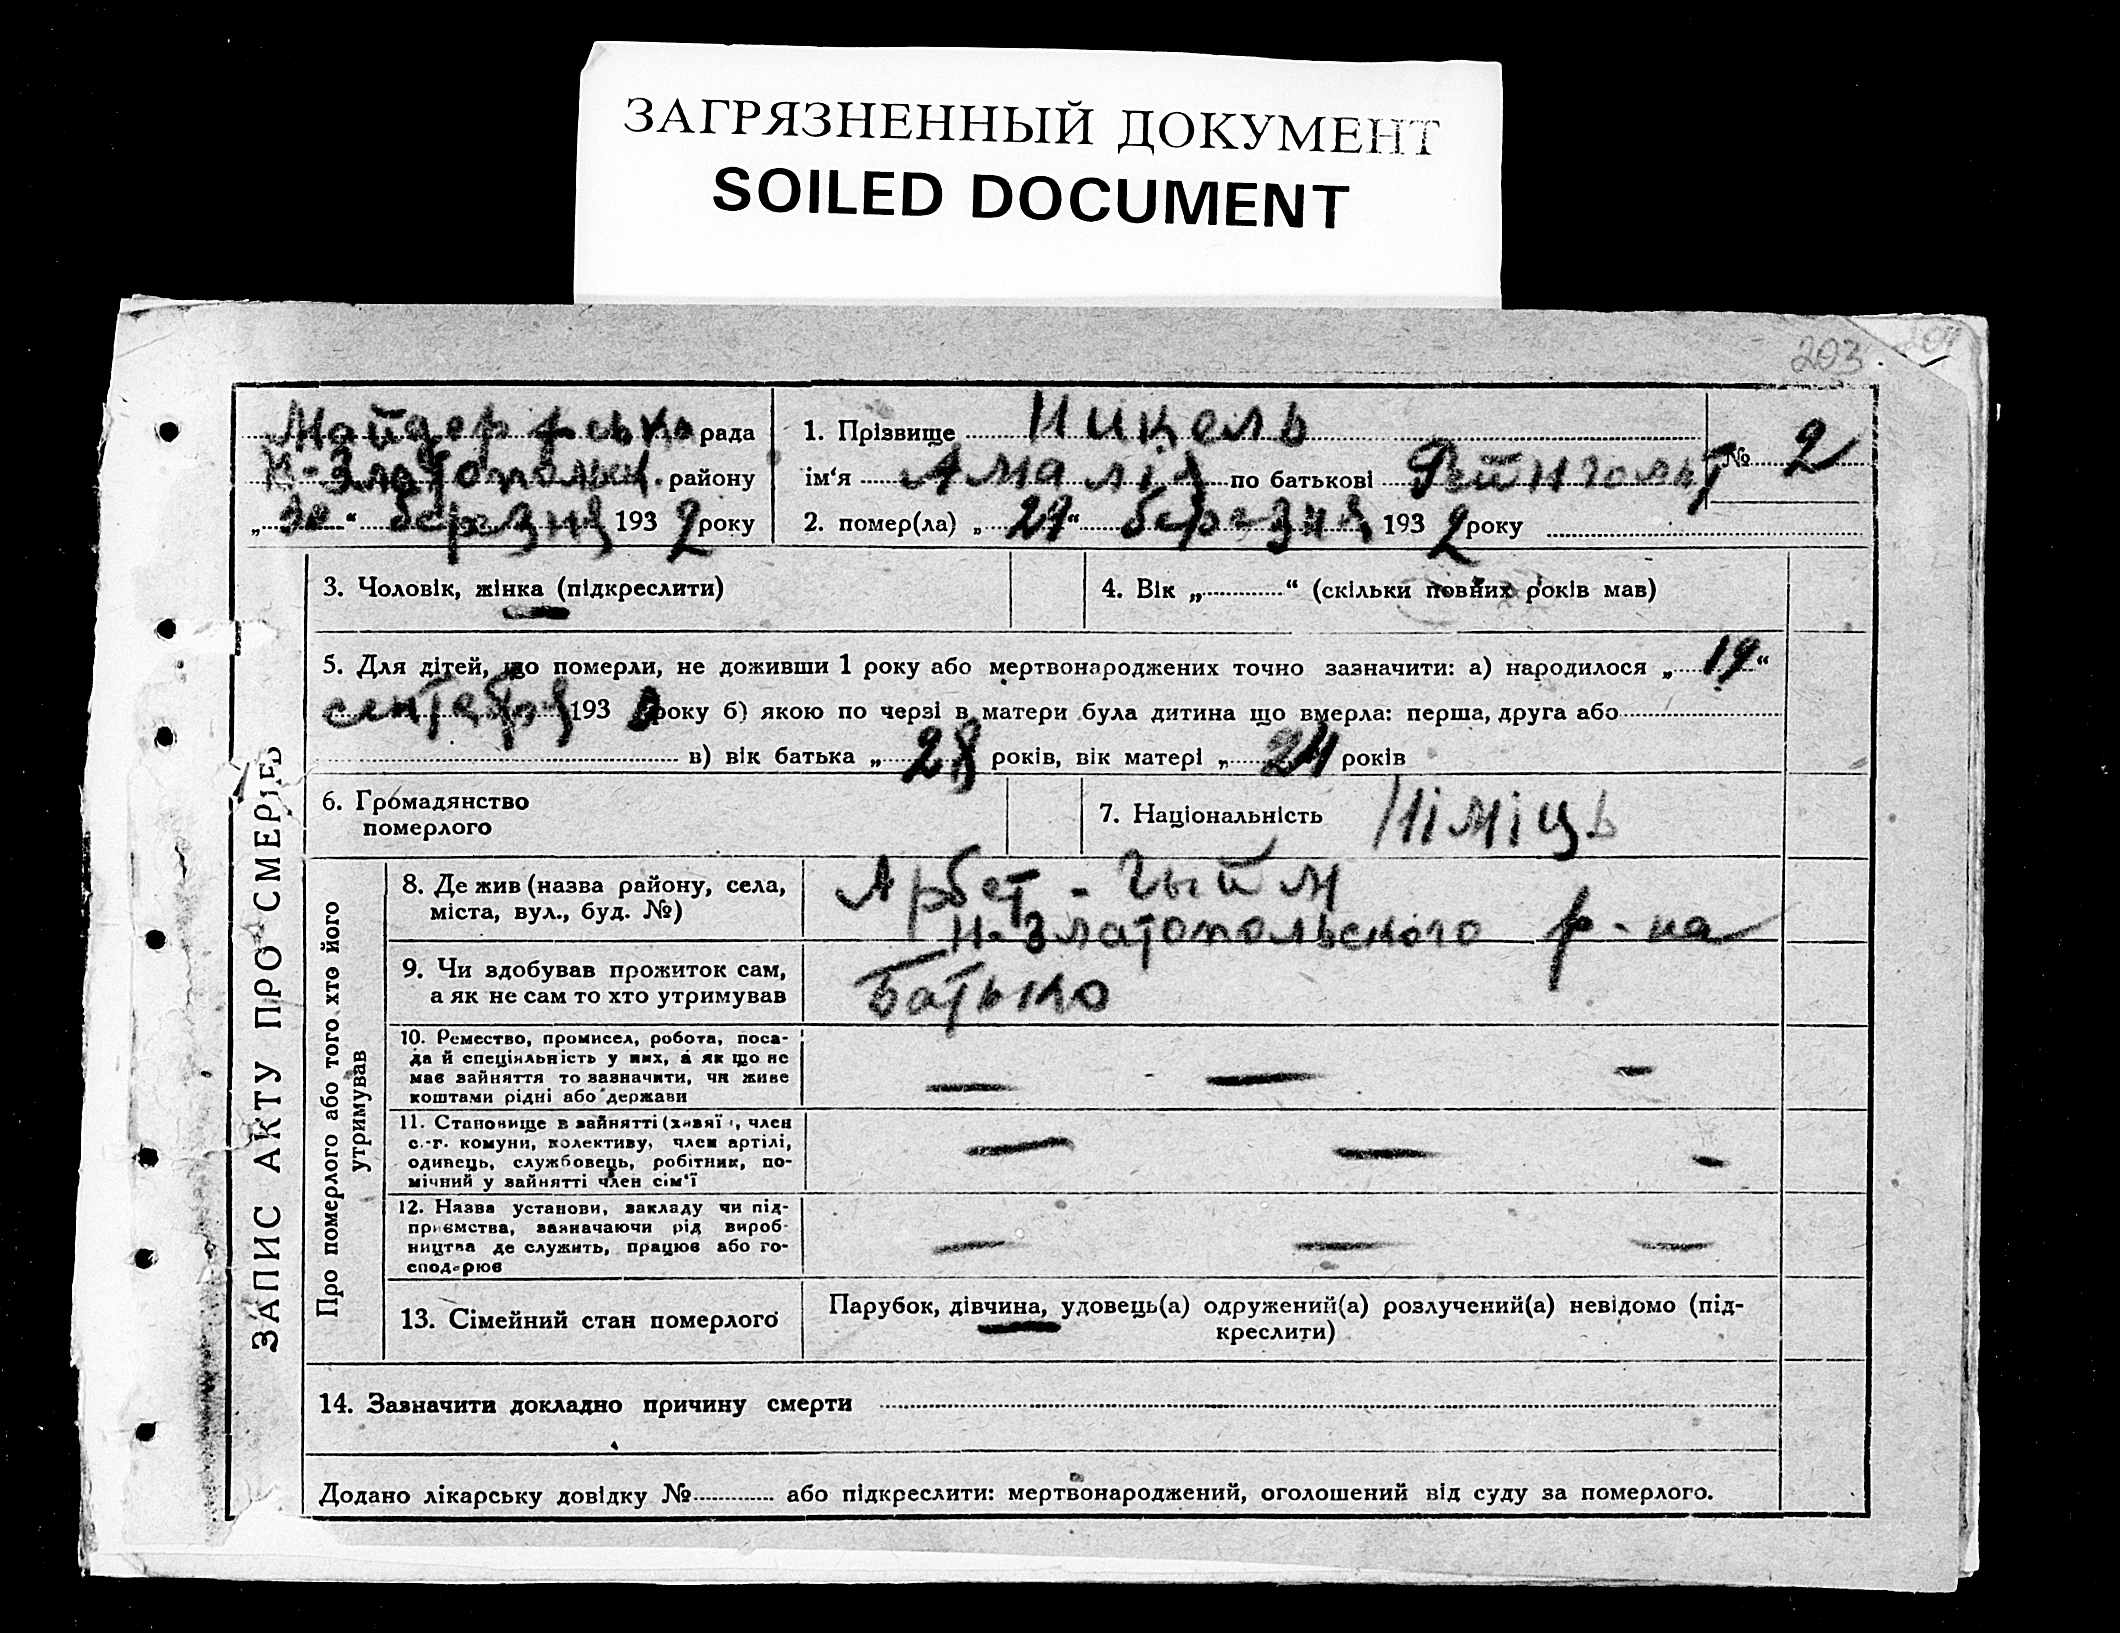 ЗАГРЯЗНЕННЫЙ ДОКУМЕНТ
SOILED DOCUMENT
203
ЗАПИС АКТУ ПРО СМЕРТЬ
Майдорфська рада
Н-Златопольск. району
„30“ березня 1932 року
1. Прізвище Никель
ім‘я Амалія по батькові Рейнгольд
№ 2
2. помер(ла) „29“ березня 1932 року
3. Чоловік, жінка (підкреслити)
4. Вік „ “ (скільки повних років мав)
5. Для дітей, що померли, не доживши 1 року або мертвонароджених точно зазначити: а) народилося „19“
сентября 193 року б) якою по черзі в матери була дитина що вмерла: перша, друга або
в) вік батька „28 років, вік матері „24 років
6. Громадянство
померлого
7. Національність Німіць
Про померлого або того хто його
утримував
8. Де жив (назва району, села,
міста, вул., буд. №)
Арбет-гыйм
Н-Златопольского р-на
9. Чи здобував прожиток сам,
а як не сам то хто утримував
Батько
10. Ремество, промисел, робота, поса-
да й спеціяльність у них, а як що не
має зайняття то зазначити, чи живе
коштами рідні або держави
— — —
11. Становище в зайнятті (хазяїн, член
с.-г. комуни, колективу, член артілі,
одинець, службовець, робітник, по-
мічний у зайнятті член сім‘ї
— — —
12. Назва установи, закладу чи під-
приємства, зазначаючи рід вироб-
ництва де служить, працює або го-
сподарює
— — —
13. Сімейний стан померлого
Парубок, дівчина, удовець(а) одружений(а) розлучений(а) невідомо (під-
креслити)
14. Зазначити докладно причину смерти
Додано лікарську довідку № або підкреслити: мертвонароджений, оголошений від суду за померлого.